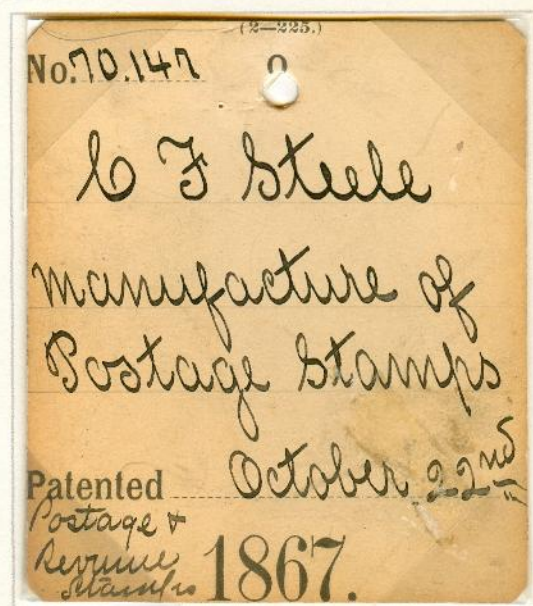 (2—225.)
No. 70.147
C F Steele
manufacture of
Postage Stamps
Patented October 22nd
Postage &
Revenue
Stamps
1867.